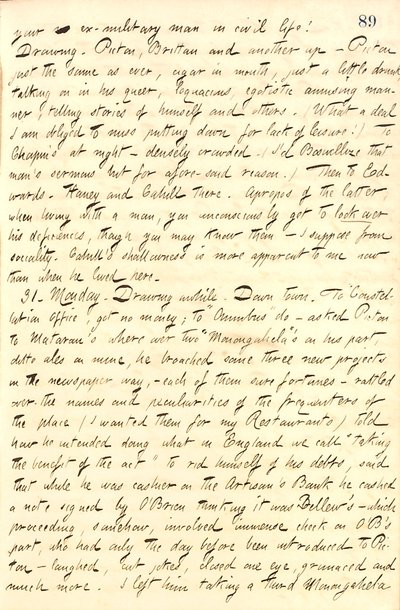 89
your ex-military man in civil life!
Drawing. Picton, Brittan and another up – Picton
just the same as ever, cigar in mouth, just a little drunk
talking on in his queer, loquacious, egotistic amusing man-
ner; telling stories of himself and others. (What a deal
I am obliged to miss putting down for lack of leisure!) To
Chapin's at night – densely crowded. (I'd Boswellize that
man's sermons but for afore-said reason.) Then to Ed-
wards. Haney and Cahill there. Apropos of the latter,
when living with a man, you unconsciously get to look over
his deficiences, though you may know them – I suppose from
sociality. Cahill's shallowness is more apparent to me now
than when he lived here.
31. Monday. Drawing awhile. Down town. To "Constel-
lation office, got no money; to "Omnibus" do – asked Picton
to Mataran's where over two "Monongahela's on his part,
ditto ales on mine, he broached some three new projects
in the newspaper way, – each of them sure fortunes – rattled
over the names and peculiarities of the frequenters of
the place (I wanted them for my Restaurants) told
how he intended doing what in England we call "taking
the benefit of the act" to rid himself of his debts, said
that while he was cashier on the Artisan's Bank he cashed
a note signed by O'Brien thinking it was Bellew's – which
proceeding, somehow, involved immense cheek on O'B's
part, who had only the day before been introduced to Pic-
ton – laughed, cut jokes, closed one eye, grimaced and
much more. I left him taking a third Monongahela